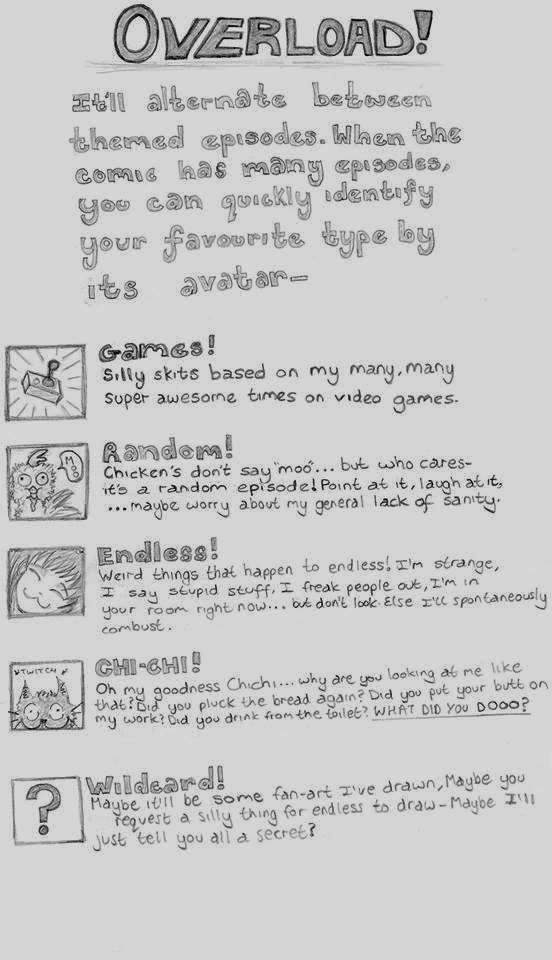 OVERLOAD!
It'll alternate between
themed episodes. When the
comic has many episodes,
you can quickly identify
your favourite type by
its avatar—
Games!
Silly skits based on my many, many
super awesome times on video games.
Random!
MOO
Chicken's don't say "moo"... but who cares-
it's a random episode! Point at it, laugh at it,
...maybe worry about my general lack of sanity.
Endless!
Weird things that happen to endless! I'm strange,
I say stupid stuff. I freak people out, I'm in
your room right now... but don't look. Else I'll spontaneously
combust.
TWITCH
CHI-CHI!
Oh my goodness Chichi... why are you looking at me like
that? Did you pluck the bread again? Did you put your butt on
my work? Did you drink from the toilet? WHAT DID YOU DOOO?
?
Wildcard!
Maybe it'll be some fan-art I've drawn, Maybe you
request a silly thing for endless to draw - Maybe I'll
just tell you all a secret?